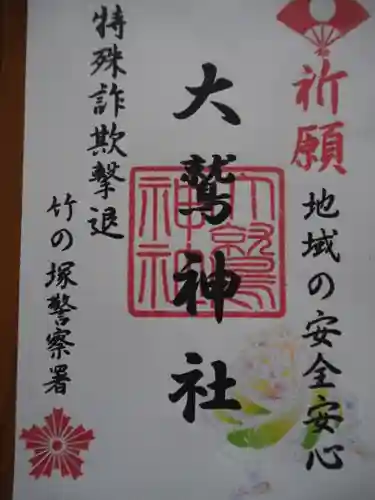 祈願
地域の安全安心
大鷲神社
大鷲神社
特殊詐欺撃退
竹の塚警察署